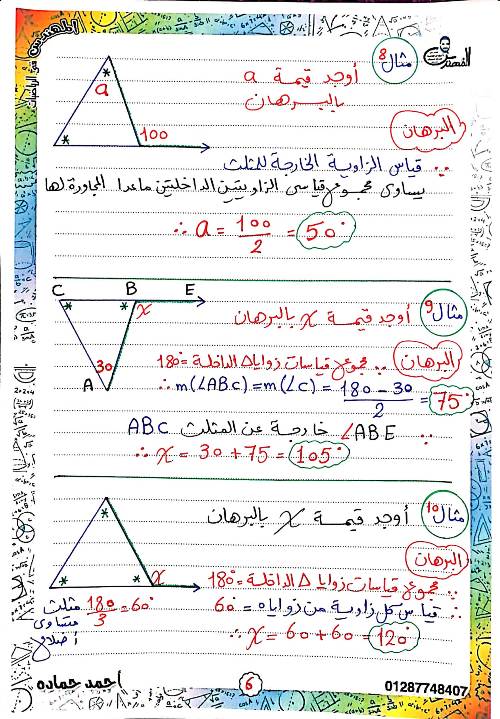 المهندس
في الرياضيات
مثال 8
أوجد قيمة a
بالبرهان
a
*
100
البرهان
∵ قياس الزاوية الخارجة للمثلث
يساوى مجموع قياسى الزاويتين الداخلتين ماعدا المجاورة لها
∴ a = 100/2 = 50°
C B E
* * x
30
A
مثال 9
أوجد قيمة x بالبرهان
البرهان
∵ مجموع قياسات زوايا Δ الداخلة = 180°
∴ m(∠ABC) = m(∠C) = (180 - 30)/2 = 75°
∵ ∠ABE خارجة عن المثلث ABC
∴ x = 30 + 75 = 105°
مثال 10
أوجد قيمة x بالبرهان
*
* * x
البرهان
∵ مجموع قياسات زوايا Δ الداخلة = 180°
∴ قياس كل زاوية من زواياه = 60°
180/3 = 60°
مثلث
متساوى
أضلاع
∴ x = 60 + 60 = 120°
احمد حماده
6
01287748407